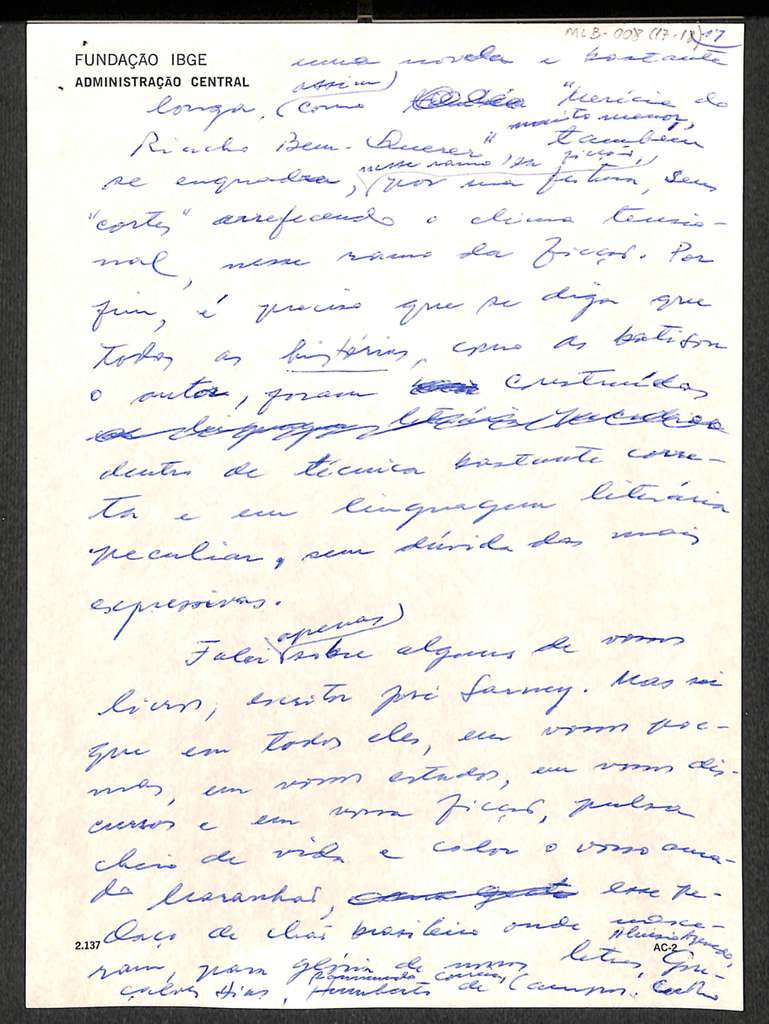 MLB-008 (17-18) 17
FUNDAÇÃO IBGE
ADMINISTRAÇÃO CENTRAL
uma novela e bastante
assim
longa, como "Merícia do
muito menor,
Riacho Bem-Querer" também
nesse ramo da ficção,
se enquadra, por ma feitura, seus
"cortes" arrefecendo o clima tensio-
nal, nesse ramo da ficção. Por
fim, é preciso que se diga que
todas as histórias, como as batisou
o autor, foram construídas
dentro de técnica bastante corre-
ta e em linguagem literária
peculiar, sem dúvida das mais
expressivas.
apenas
Falei sobre alguns de vossos
livros, escritor José Sarney. Mas sei
que em todos eles, em vossos poe-
mas, em vossos estudos, em vossos dis-
cursos e em vossa ficção, pulsa
cheio de vida e calor o vosso ama-
do Maranhão, esse pe-
daço de chão brasileiro onde nasce-
Aluísio Azevedo,
ram, para glória de nossas letras, Gon-
Raimundo Correia
çalves Dias, Humberto de Campos, Coelho
2.137
AC-2